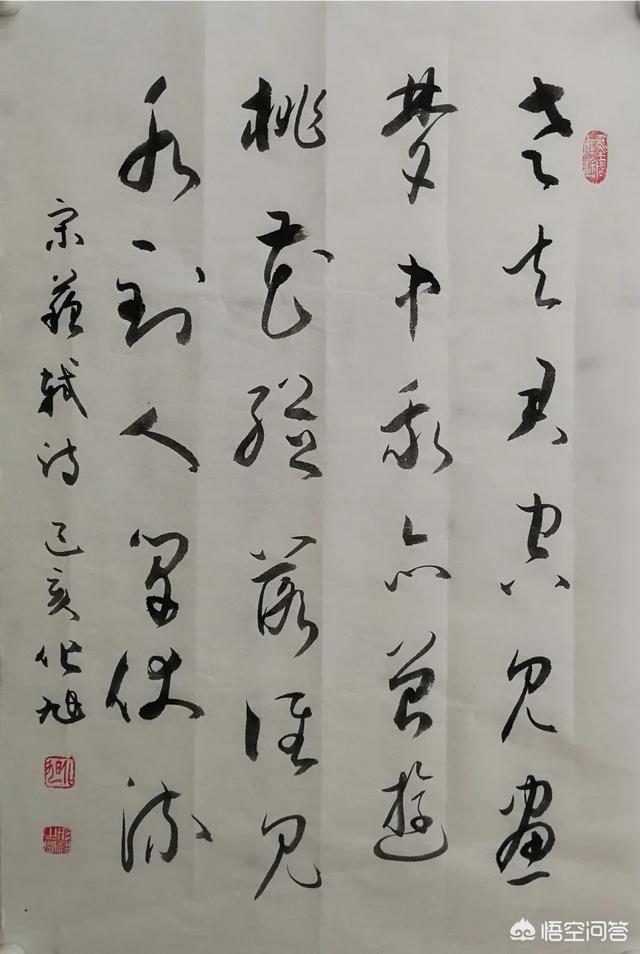 老去君空见画
梦中我亦曾遊
桃花纵落谁见
水到人间伏流
宋苏轼诗 己亥 化旭
悟空问答